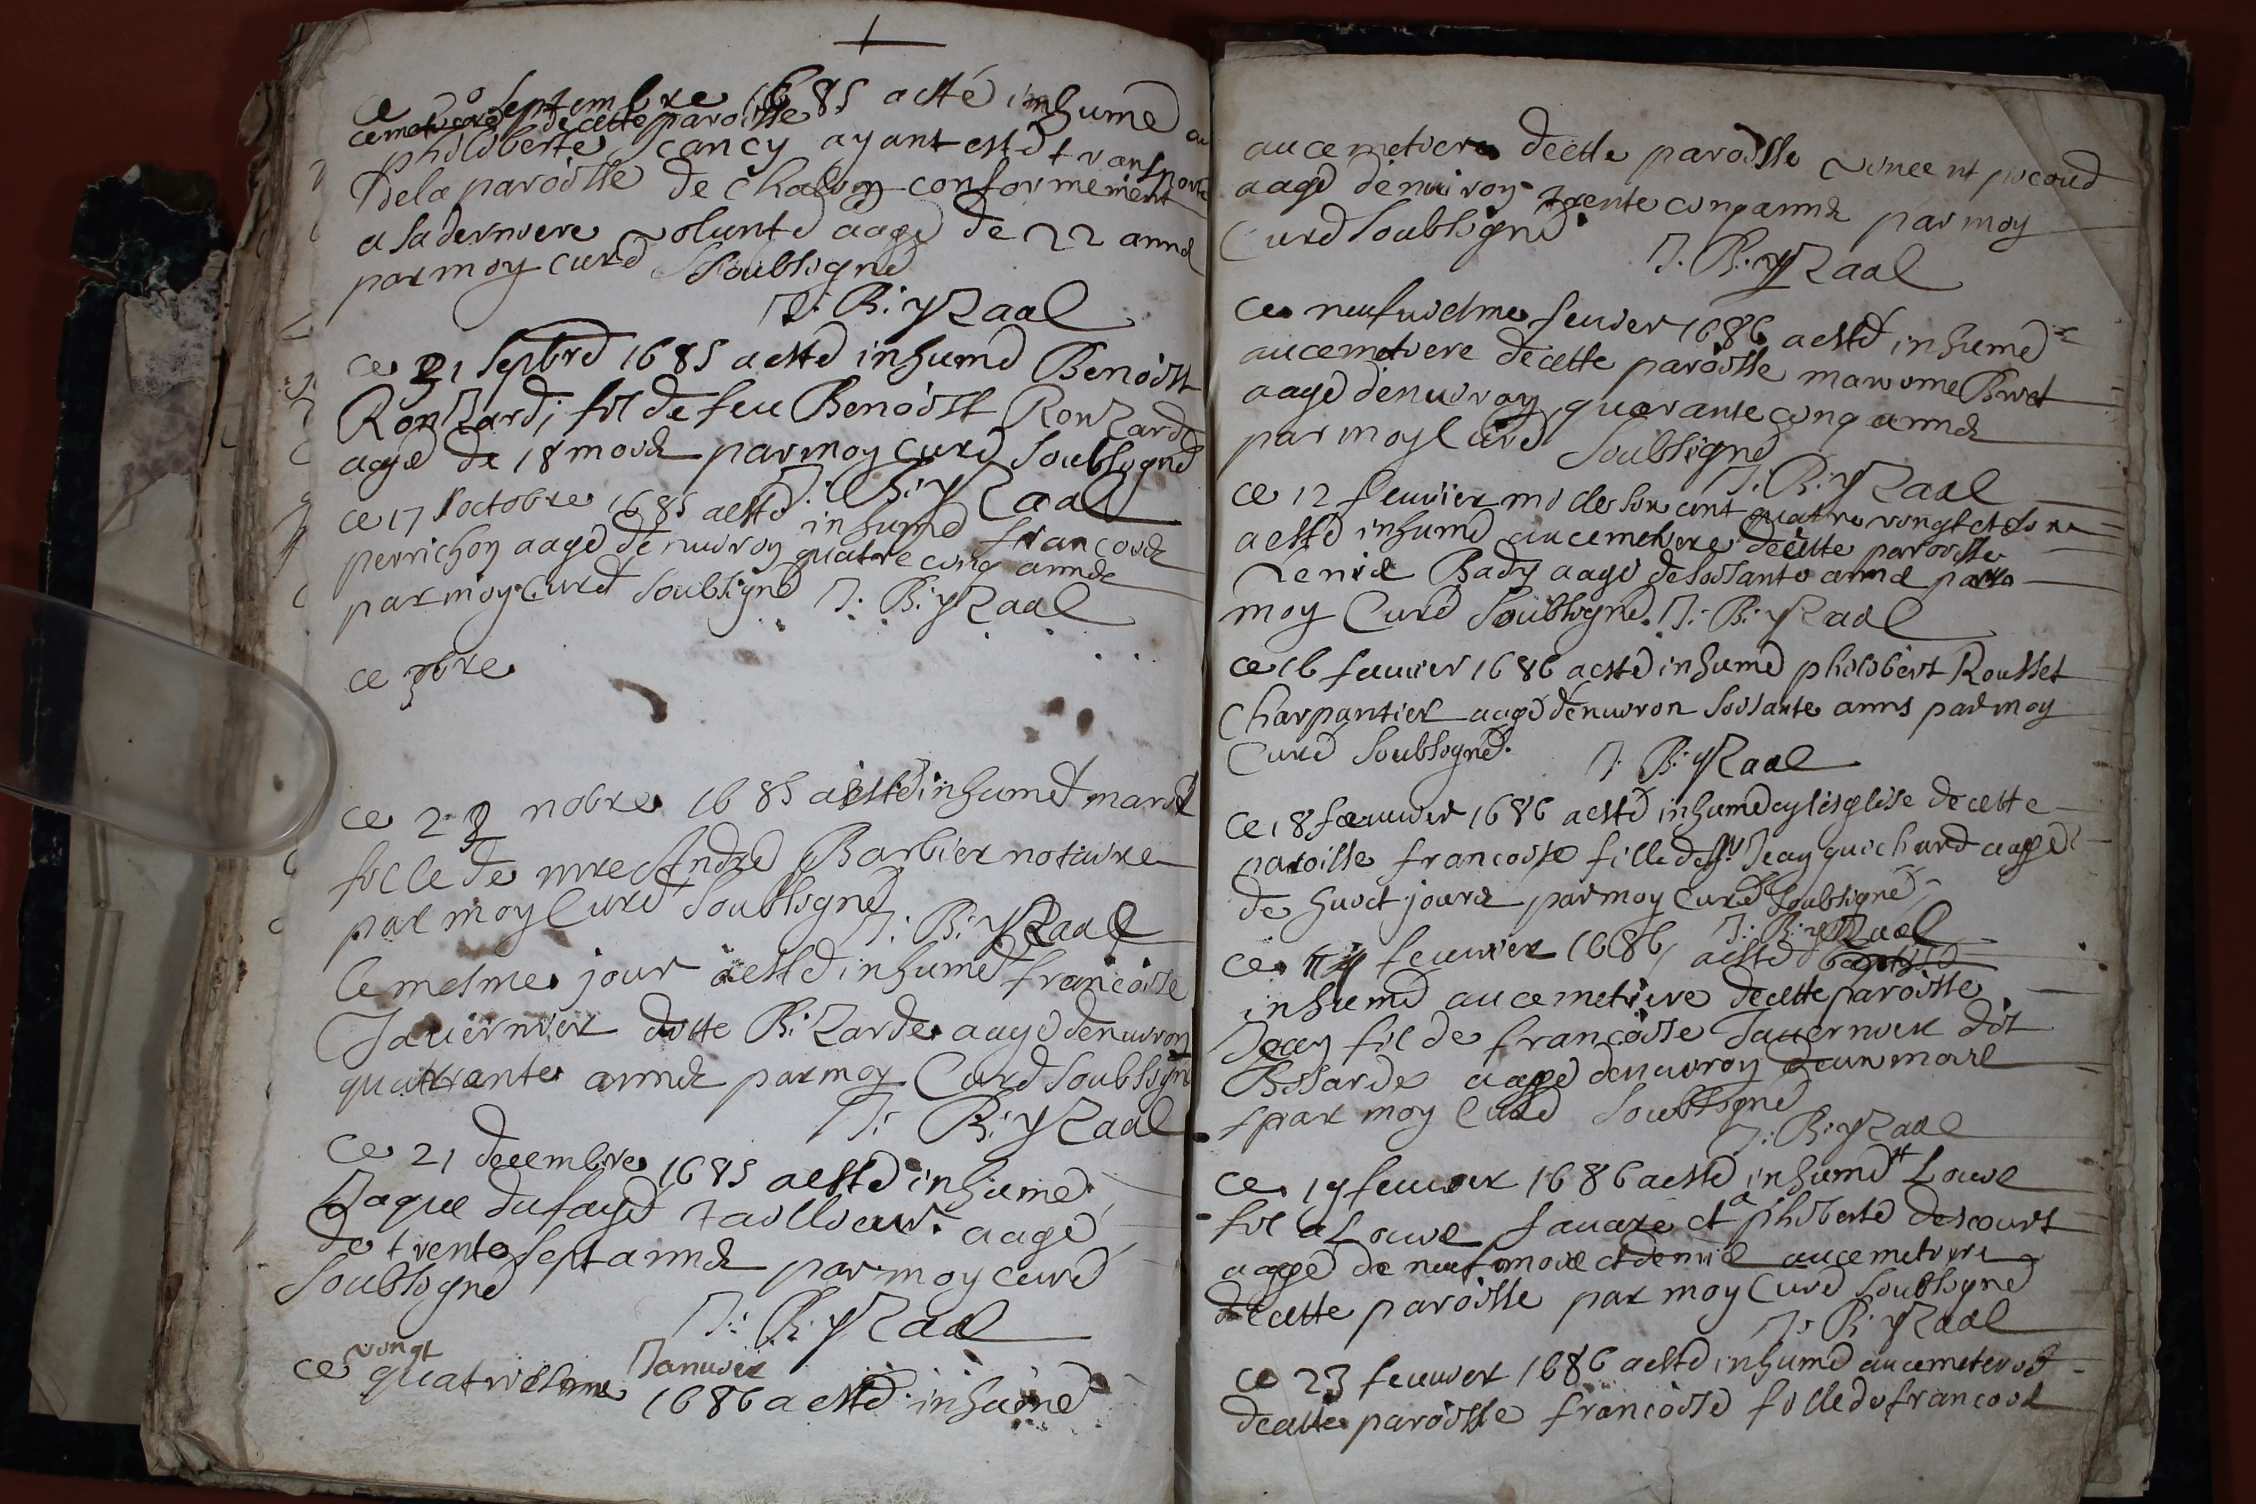 ce septembre 1685 a esté inhumé au
cemetiere de cette paroisse
philiberte cancy ayant esté transporte
dela paroisse de chalon conformement
a sa derniere volunté aagé de 22 anné
par moy curé soubsigné
J: B: yRaal
ce 21 septbré 1685 a esté inhumé Benoist
Ronzard, fil de feu Benoist Ronzard
agé de 18 mois par moy curé soubsigné
J: B: yRaal
ce 17 octobre 1685 a esté inhumé francois
perrichon aagé denuiron quatre cinq année
par moy curé soubsigné J: B: yRaal
ce 9bre
ce 23 nobre 1685 a esté inhumé marie
fille de mre André Barbier notaire
par moy Curé soubsigné
J: B: yRaal
le mesme jour a esté inhumé francoise
Tavernier ditte Bizarde aagé denuiron
quarante année par moy Curé soubsigné
J: B: yRaal
Ce 21 decembre 1685 a esté inhumé
Jaque dufayé taillieur aagé
de trente sept année par moy curé
soubsigné
J: B: yRaal
vingt Januier
ce quatriesme 1686 a esté inhumé
au cemetiere decette paroisse vincent picoud
aagé denuiron trente cinq année par moy
Curé soubsigné
J: B: yRaal
ce neufuiesme feuier 1686 a esté inhumé
au cemetiere decette paroisse
aagé denuiron quarante cinq année
par moy Curé soubsigné
J: B: yRaal
ce 12 feuurier mi le six cent quatre vingt et six
a esté inhumé au cemetiere decette paroisse
Denise Bady aagé de soisante anné par
moy Curé soubsigné. J: B: yRaal
ce 16 feuuier 1686 a esté inhumé philibert Rousset
Charpantier aagé denuiron soisante anns par moy
Curé soubsigné.
J: B: yRaal
Ce 18 feuuier 1686 a esté inhumé en lesglise de cette
paroisse francoise fille de Sr Jean guichard aagé
de huict jours par moy Curé soubsigné
J: B: yRaal
ce feuurier 1686 a esté baptisé
inhumé au cemetiere decette paroisse
Jean fil de francoise Tauernier dit
Bisarde aagé denuiron d'un mois
par moy Curé soubsigné
J: B: yRaal
ce 19 feuuier 1686 a esté inhumé Louis
fil a Louis sauare et a philiberte descourt
aagé de neuf mois et demie au cemetiere
decette paroisse par moy Curé soubsigné
J: B: yRaal
ce 23 feuuier 1686 a esté inhumé au cemetiere
decette paroisse francoise fille de francois